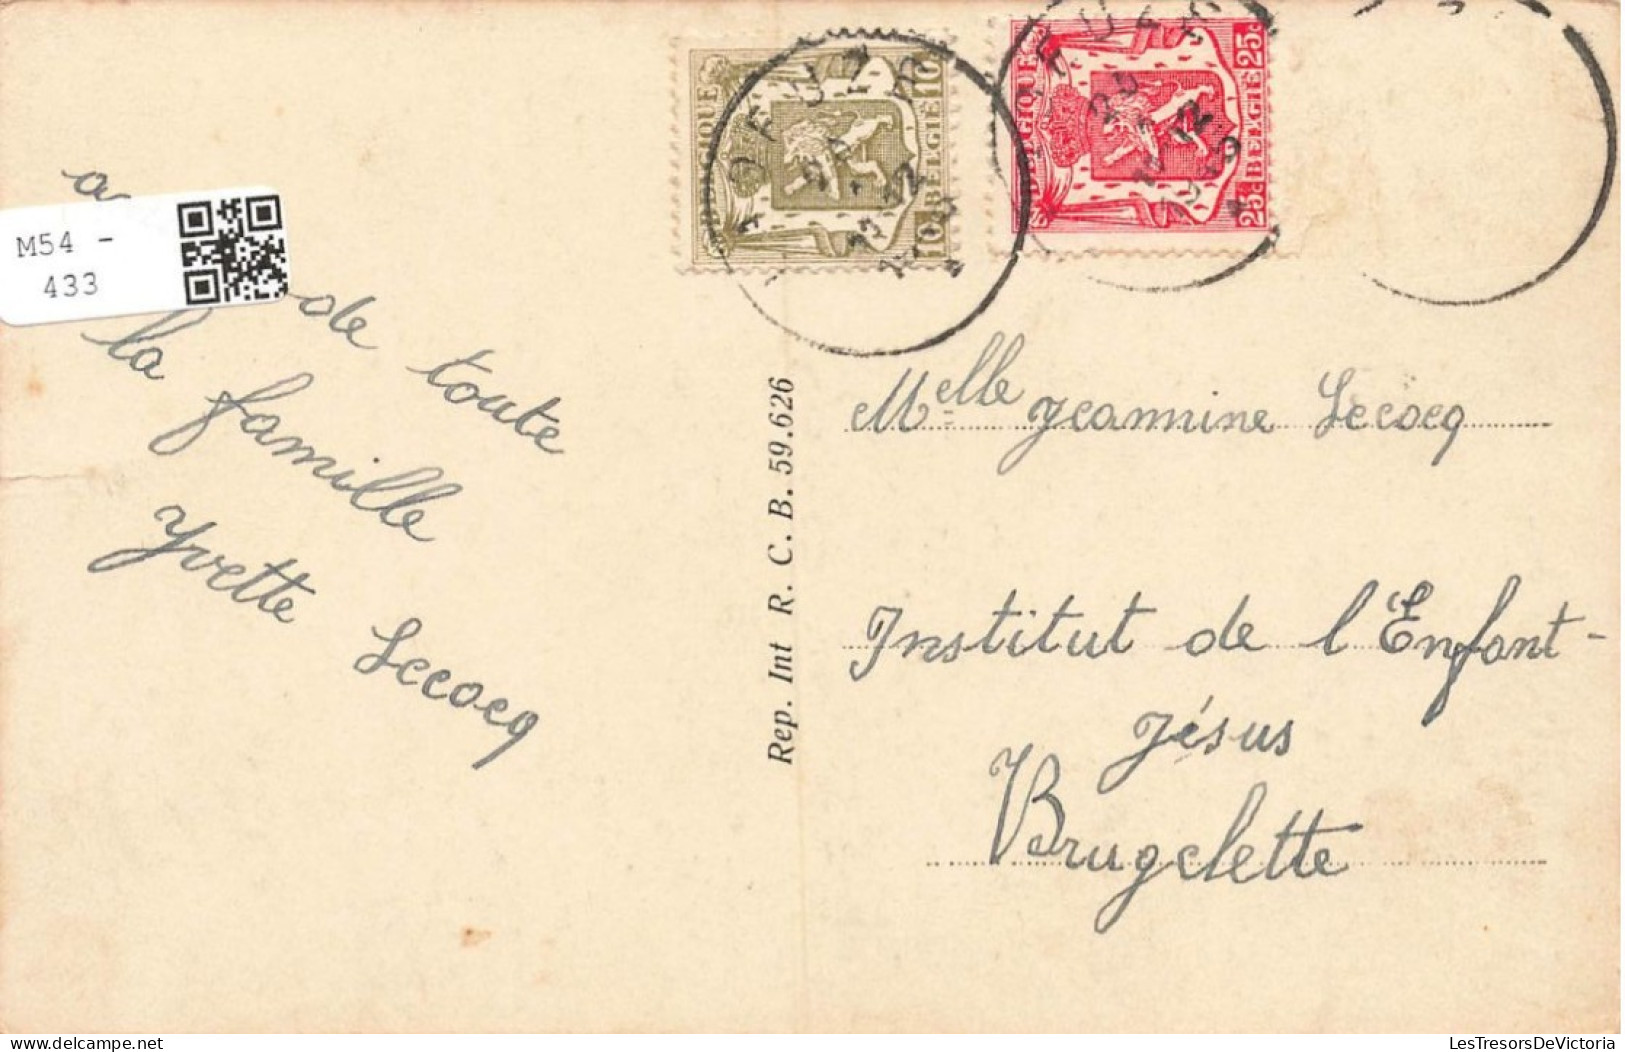 M54 -
433
de toute
la famille
Yvette Lecocq
Rep. Int R. C. B. 59.626
BELGIQUE
10c BELGIË 10c
BELGIQUE
25c BELGIË 25c
Melle Jeannine Lecocq
Institut de l'Enfant-
Jésus
Brugelette
© LesTresorsDeVictoria
LesTresorsDeVictoria.com